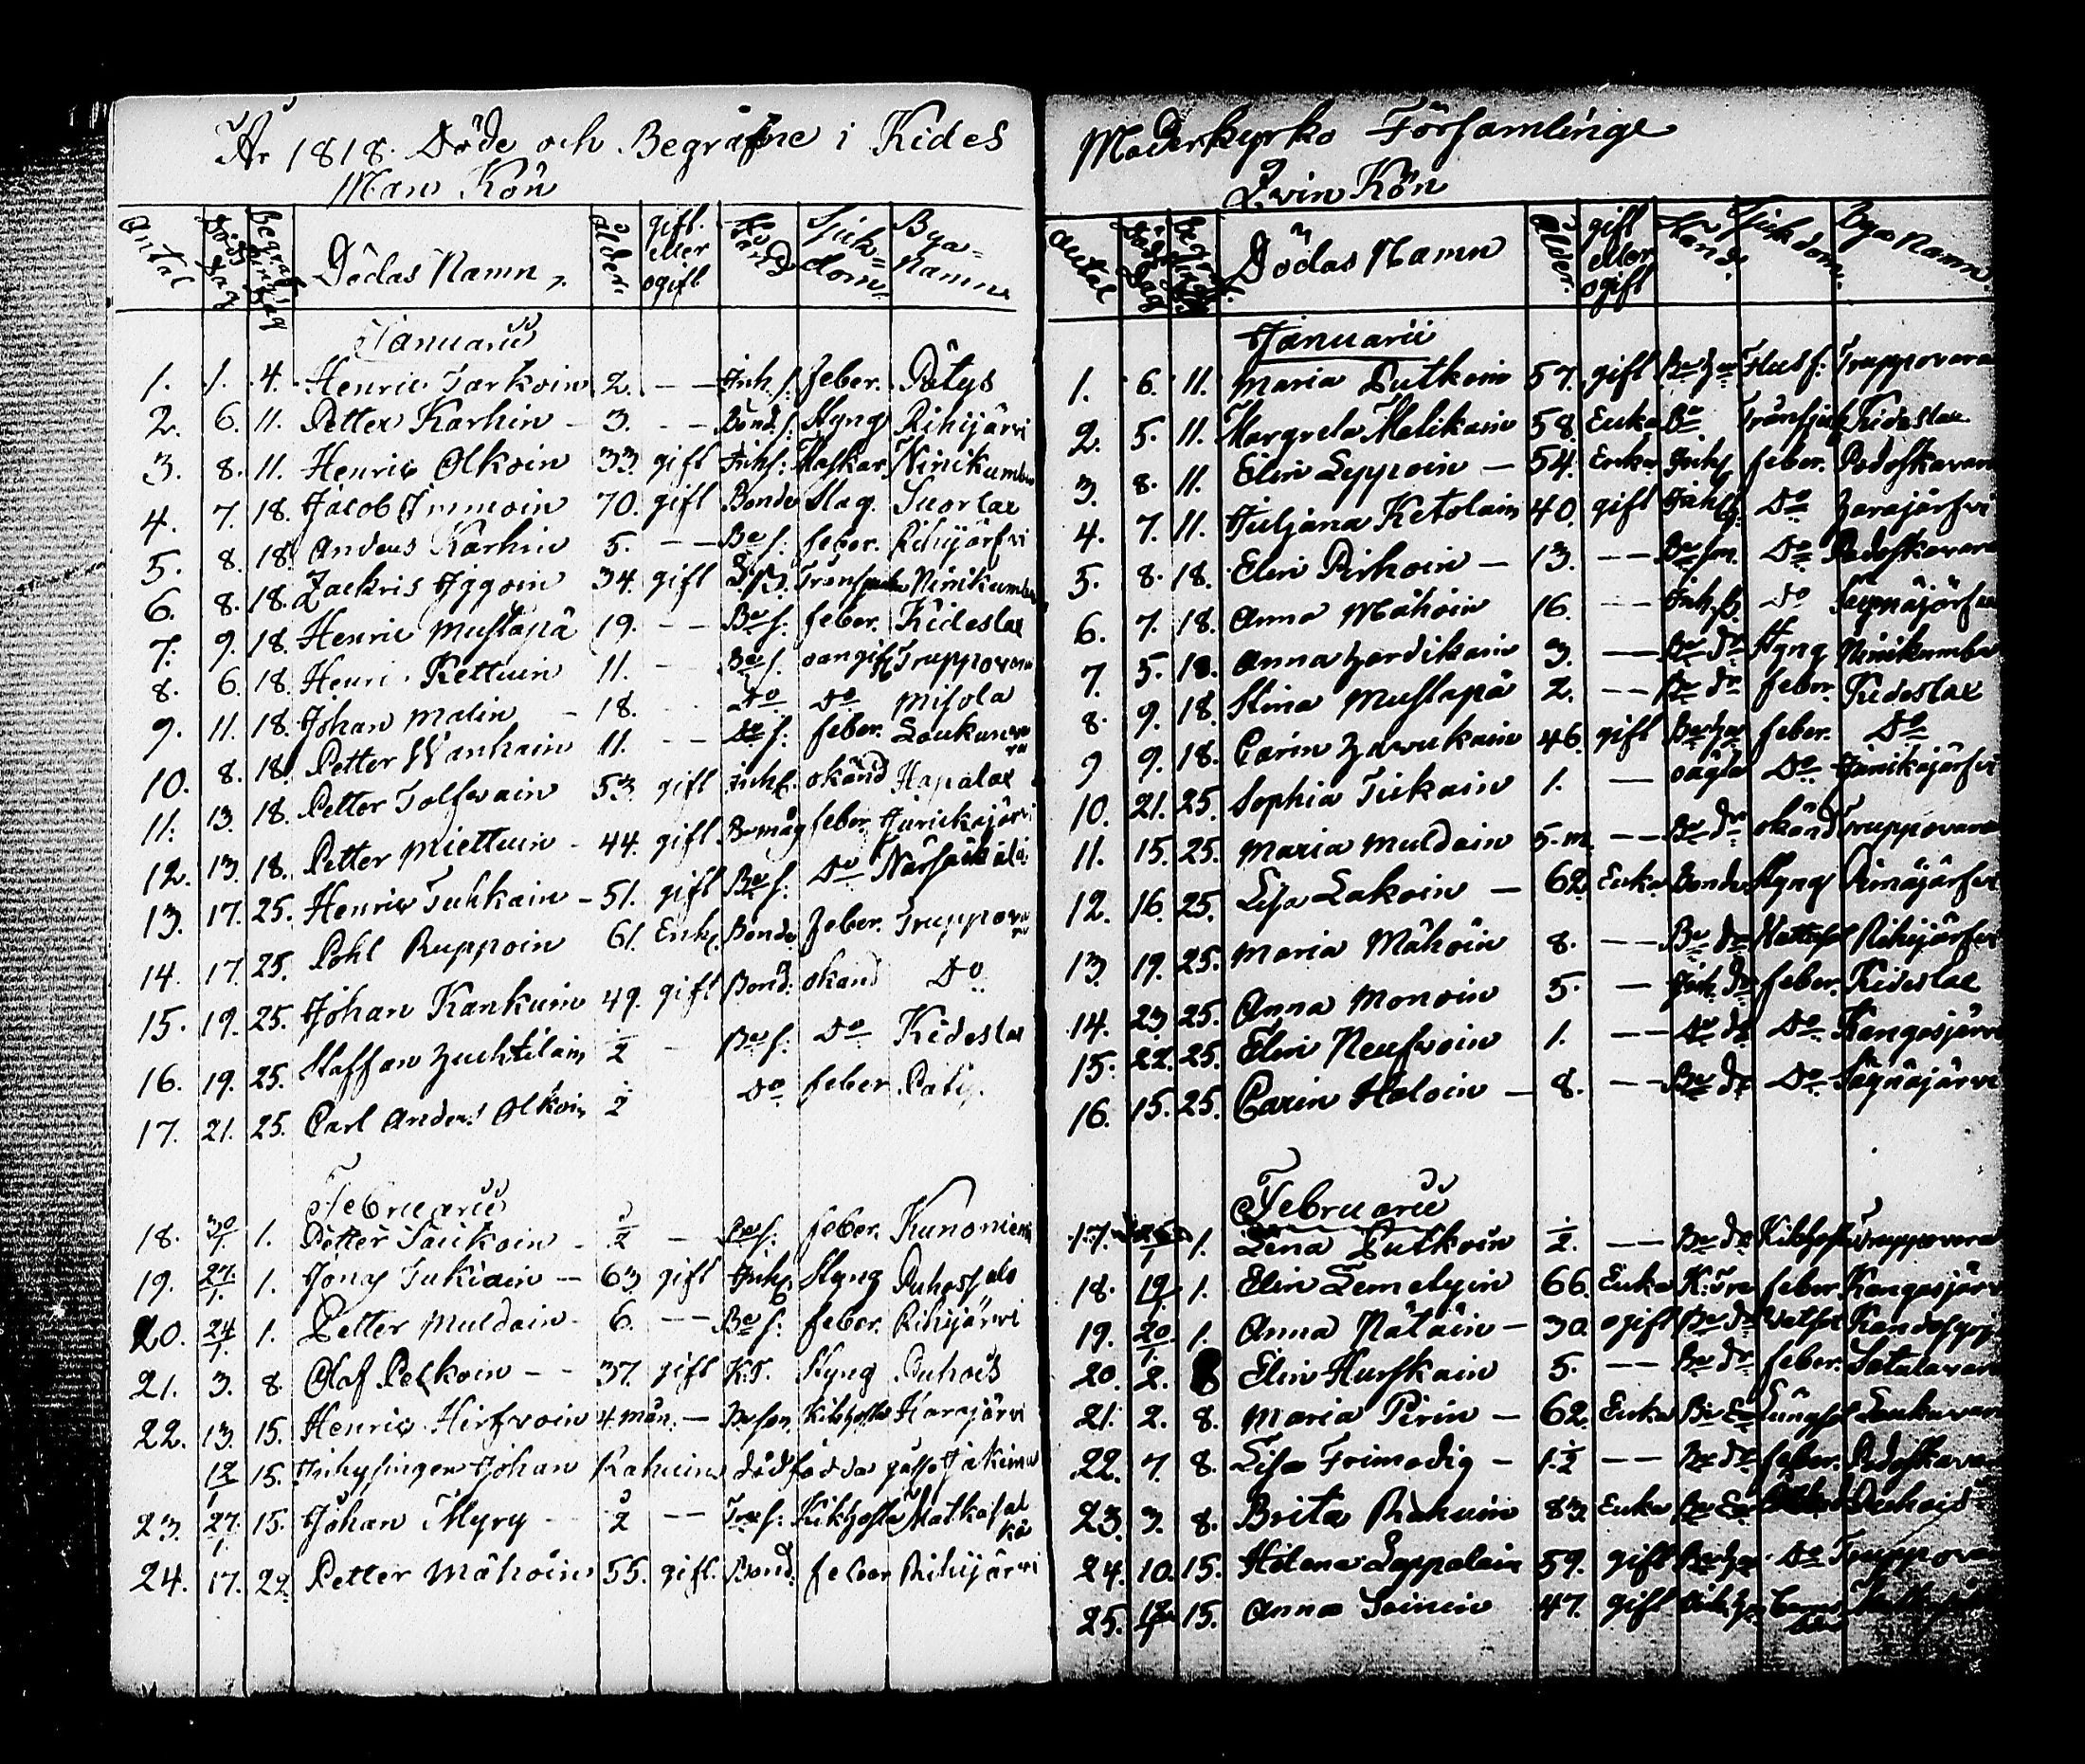 År 1818. Döde och Begrafne i Kides
Man Kön
Antal Döds Dag Begrafnings Dag Dödas Namn ålder gift. eller ogift Stånd Sjuk= dom. Bya= Namn
Januarii
1. 1. 4. Henric Tarkoin 2. — — Inh. s. feber. Pötys
2. 6. 11. Petter Karhin — 3. — — Bond. s. Styng Rihijärvi
3. 8. 11. Henric Olkoin 33. gift Inhs: Maskar. Ninikumbu
4. 7. 18. Jacob Immoin 70. gift Bonde Slag. Suorlax
5. 8. 18. Anders Karhin 5. — — Be s: feber. Rihijärfvi
6. 8. 18. Zackris Iggoin 34. gift Ninikumbu
7. 9. 18. Henric Mustapä 19. — — Be s: feber. Kideslax
8. 6. 18. Henric Kettuin 11. — Be s. oangif. Truppovara
9. 11. 18. Johan Malin — 18. Do Do Misola
10. 8. 18. Petter Wanhain 11. — — Do s: feber. Loukunvaara
11. 13. 18. Petter Tolfvain 53. gift Inhs. okänd Hapalax
12. 13. 18. Petter Miettuin — 44. gift. Bomåg feber. Jurickajärvi
13. 17. 25. Henric Tuhkain — 51. gift Be s: Do Närsäkälä
14. 17. 25. Pohl Ruppoin 61. Enkl. Bonde feber. Truppovara
15. 19. 25. Johan Kankuin 49. gift Bond: okänd Do
16. 19. 25. Staffan Zuchtilain ½ — Be s: Do Kideslax
17. 21. 25. Carl Anders Olkoin ½ Do feber Potys.
Februarii
18. 30/1. 1. Petter Taikoin — ½ — Be s. feber. Kunoniemi
19. 27/1. 1. Jonas Tukiain — 63. gift Inhs. Styng Puhossalo
20. 24/1. 1. Petter Muldain — 6. — — Be s: feber. Rihijärvi
21. 3. 8. Olof Pelkoin — — 37. gift K.T. Styng Puhois
22. 13. 15. Henric Hirfvoin 4 mån. — Be son. Kikhosta Harajärvi
12/1 15. Inhysingen Johan Rahuins dödfödda gosse Jakima
23. 27/1. 15. Johan Myry — ½ — — Tor s: Kikhosta Matkaselkä
24. 17. 22. Petter Mähöin 55. gift. Bond. feber Rihijärvi
Moderkyrko Församlinge
Qvin Kön
Antal Döds Dag Begrafnings Dag Dödas Namn ålder. gift eller ogift Stånd. Sjukdom. Bya Namn.
Januarii
1. 6. 11. Maria Putkoin 57. gift Be Flus f: Truppovara
2. 5. 11. Margreta Malikain 58. Enka Bo Tränsjuk Kideslax
3. 8. 11. Elin Leppoin — 54. Enka Inhs feber. Podoskavara
4. 7. 11. Juljana Ketolain 40. gift Do Zarajärfvi
5. 8. 18. Elin Pirhoin — 13. — — Do Podoskavara
6. 7. 18. Anna Mähöin 16. — — Do
7. 5. 18. Anna Zardikain 3. — — Be Dr Styng Ninikumbu
8. 9. 18. Stina Mustapä 2. — — Be dr feber. Kideslax
9 9. 18. Carin Zavukain 46. gift feber. Do
10. 21. 25. Sophia Tiikain 1. — oägta Do Jänikäjärfvi
11. 15. 25. Maria Muldain 5. m. — — Be Dr okänd Truppovara
12. 16. 25. Lisa Lakoin — 62. Enka Bonde Styng Pimäjärfvi
13. 19. 25. Maria Mähöin 8. — — Be dr Rihijärfvi
14. 23. 25. Anna Monoin 5. — Inh. Dr feber. Kideslax
15. 22. 25. Elin Neufvoin 1. — — Do dr Do Kangasjärvi
16. 15. 25. Carin Haloin — 8. — — Be dr Do Sägnäjärvi
Februarii
17. 1. Lena Putkoin ½. — — Be dr Kikhosta Truppovara
18. 19/1 1. Elin Lemetyin 66. Enka feber Kangasjärvi
19. 20/1. 1. Anna Nätäin — 30. ogift Be dr
20. 2. 8 Elin Hurskain 5. — — Be dr feber. Satulavara
21. 2. 8. Maria Pirin — 62. Enka Be E Lungsot Loukuvara
22. 7. 8. Lisa Frimodig — 1½ — — Be dr feber. Podoskavara
23. 3. 8. Brita Rahuin 83. Enka Be E Puhois
24. 10. 15. Helena Lappalain 59. gift Do Truppovara
25. 15. Anna Soinin 47. gift